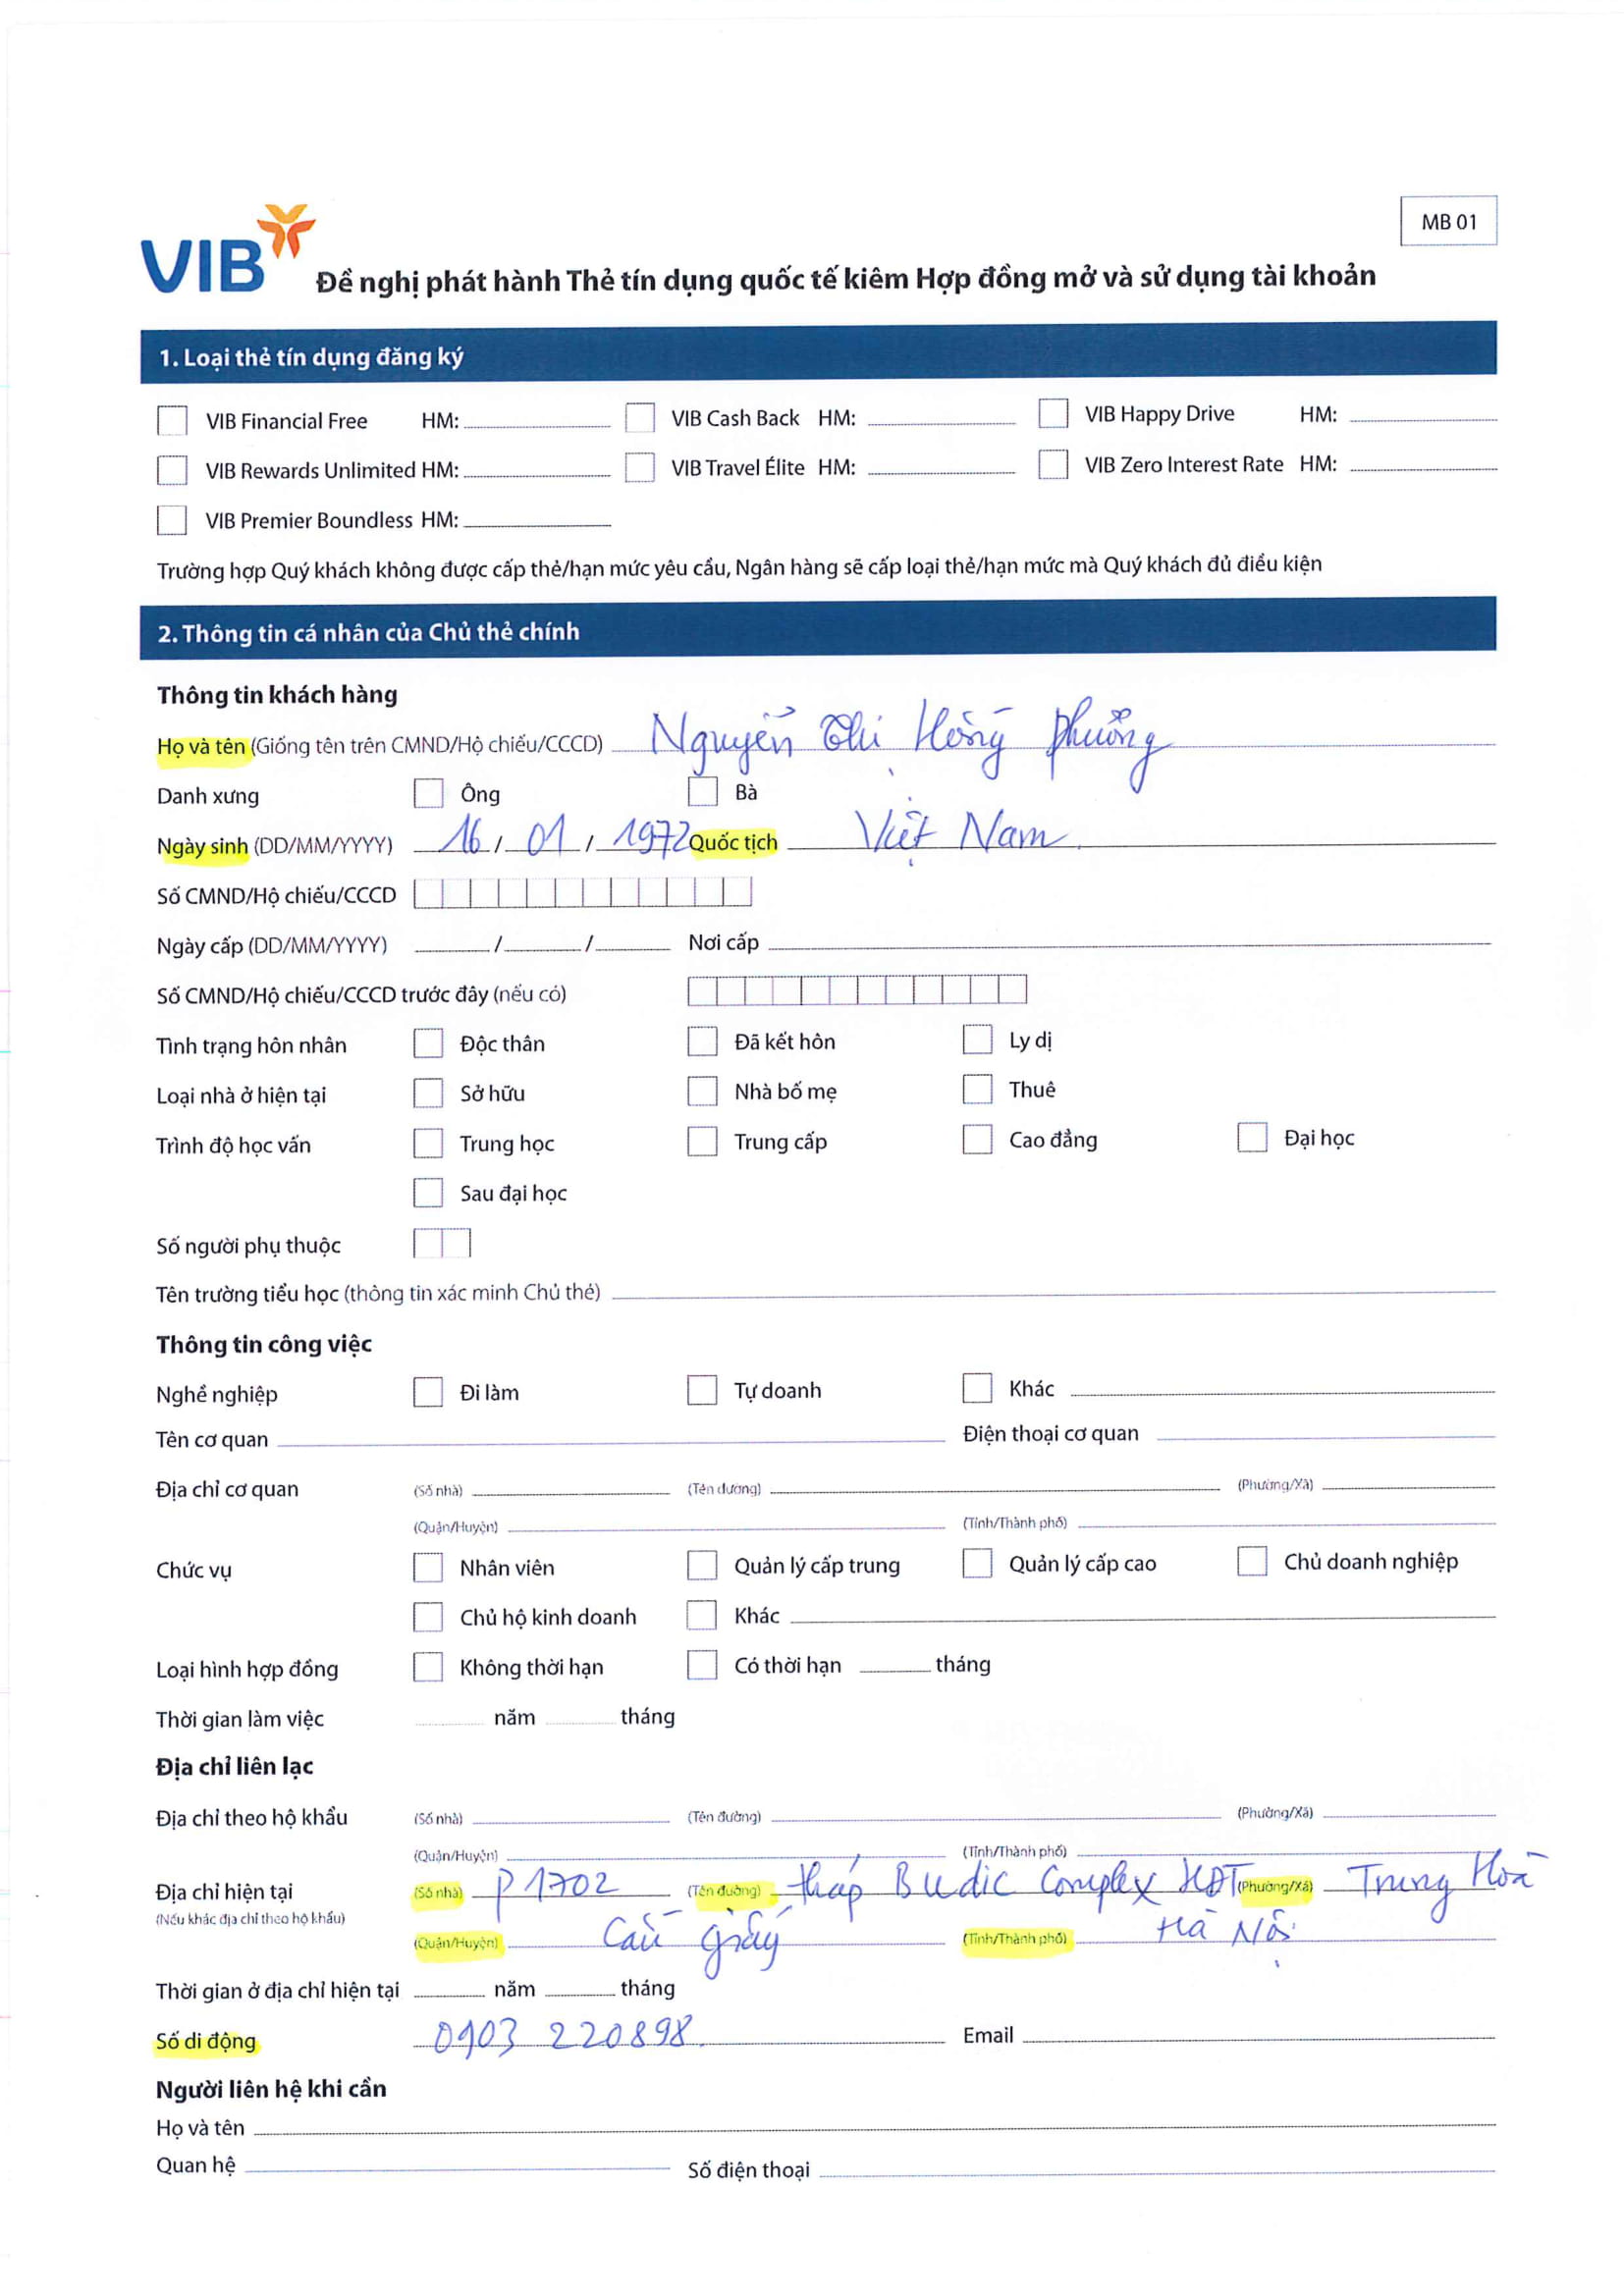 MB 01
VIB
Đề nghị phát hành Thẻ tín dụng quốc tế kiêm Hợp đồng mở và sử dụng tài khoản
1. Loại thẻ tín dụng đăng ký
VIB Financial Free HM: VIB Cash Back HM: VIB Happy Drive HM:
VIB Rewards Unlimited HM: VIB Travel Élite HM: VIB Zero Interest Rate HM:
VIB Premier Boundless HM:
Trường hợp Quý khách không được cấp thẻ/hạn mức yêu cầu, Ngân hàng sẽ cấp loại thẻ/hạn mức mà Quý khách đủ điều kiện
2. Thông tin cá nhân của Chủ thẻ chính
Thông tin khách hàng
Họ và tên (Giống tên trên CMND/Hộ chiếu/CCCD) Nguyễn Thị Hồng Phương
Danh xưng Ông Bà
Ngày sinh (DD/MM/YYYY) 16 / 01 / 1972 Quốc tịch Việt Nam.
Số CMND/Hộ chiếu/CCCD
Ngày cấp (DD/MM/YYYY) / / Nơi cấp
Số CMND/Hộ chiếu/CCCD trước đây (nếu có)
Tình trạng hôn nhân Độc thân Đã kết hôn Ly dị
Loại nhà ở hiện tại Sở hữu Nhà bố mẹ Thuê
Trình độ học vấn Trung học Trung cấp Cao đẳng Đại học
Sau đại học
Số người phụ thuộc
Tên trường tiểu học (thông tin xác minh Chủ thẻ)
Thông tin công việc
Nghề nghiệp Đi làm Tự doanh Khác
Tên cơ quan Điện thoại cơ quan
Địa chỉ cơ quan (Số nhà) (Tên đường) (Phường/Xã)
(Quận/Huyện) (Tỉnh/Thành phố)
Chức vụ Nhân viên Quản lý cấp trung Quản lý cấp cao Chủ doanh nghiệp
Chủ hộ kinh doanh Khác
Loại hình hợp đồng Không thời hạn Có thời hạn tháng
Thời gian làm việc năm tháng
Địa chỉ liên lạc
Địa chỉ theo hộ khẩu (Số nhà) (Tên đường) (Phường/Xã)
(Quận/Huyện) (Tỉnh/Thành phố)
Địa chỉ hiện tại (Số nhà) P1702 (Tên đường) tháp Budic Complex KĐT (Phường/Xã) Trung Hoà
(Nếu khác địa chỉ theo hộ khẩu)
(Quận/Huyện) Cầu Giấy (Tỉnh/Thành phố) Hà Nội
Thời gian ở địa chỉ hiện tại năm tháng
Số di động 0903 220898. Email
Người liên hệ khi cần
Họ và tên
Quan hệ Số điện thoại